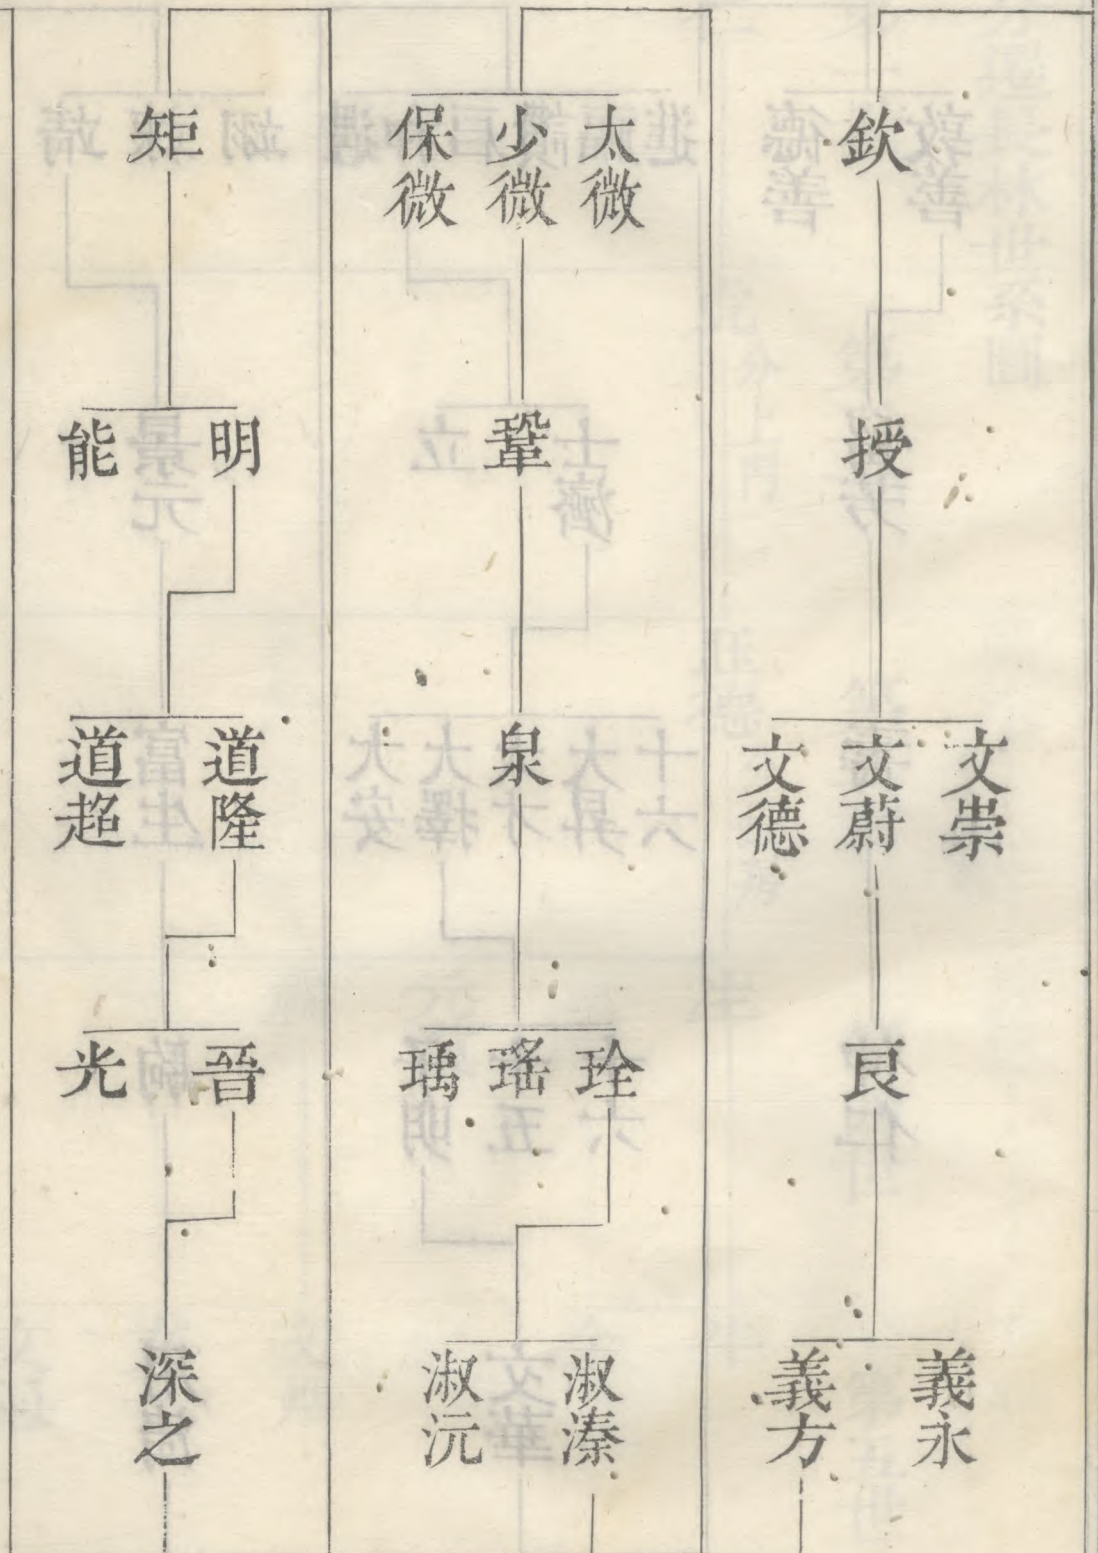 欽
授
文崇
文蔚
文德
良
義永
義方
太微
少微
保微
鞏
泉
瑤
瑀
淑溱
淑沅
矩
明
能
道隆
道超
晉
光
深之